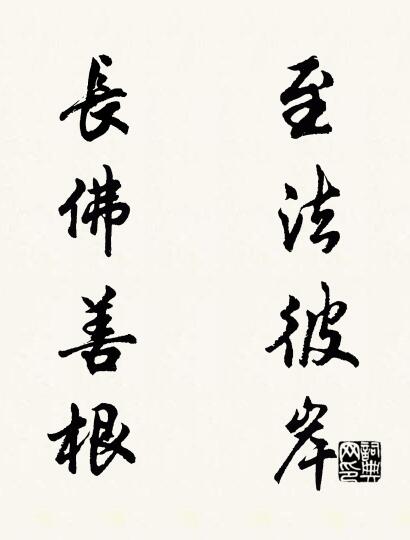 至法彼岸
長佛善根
詞典網印